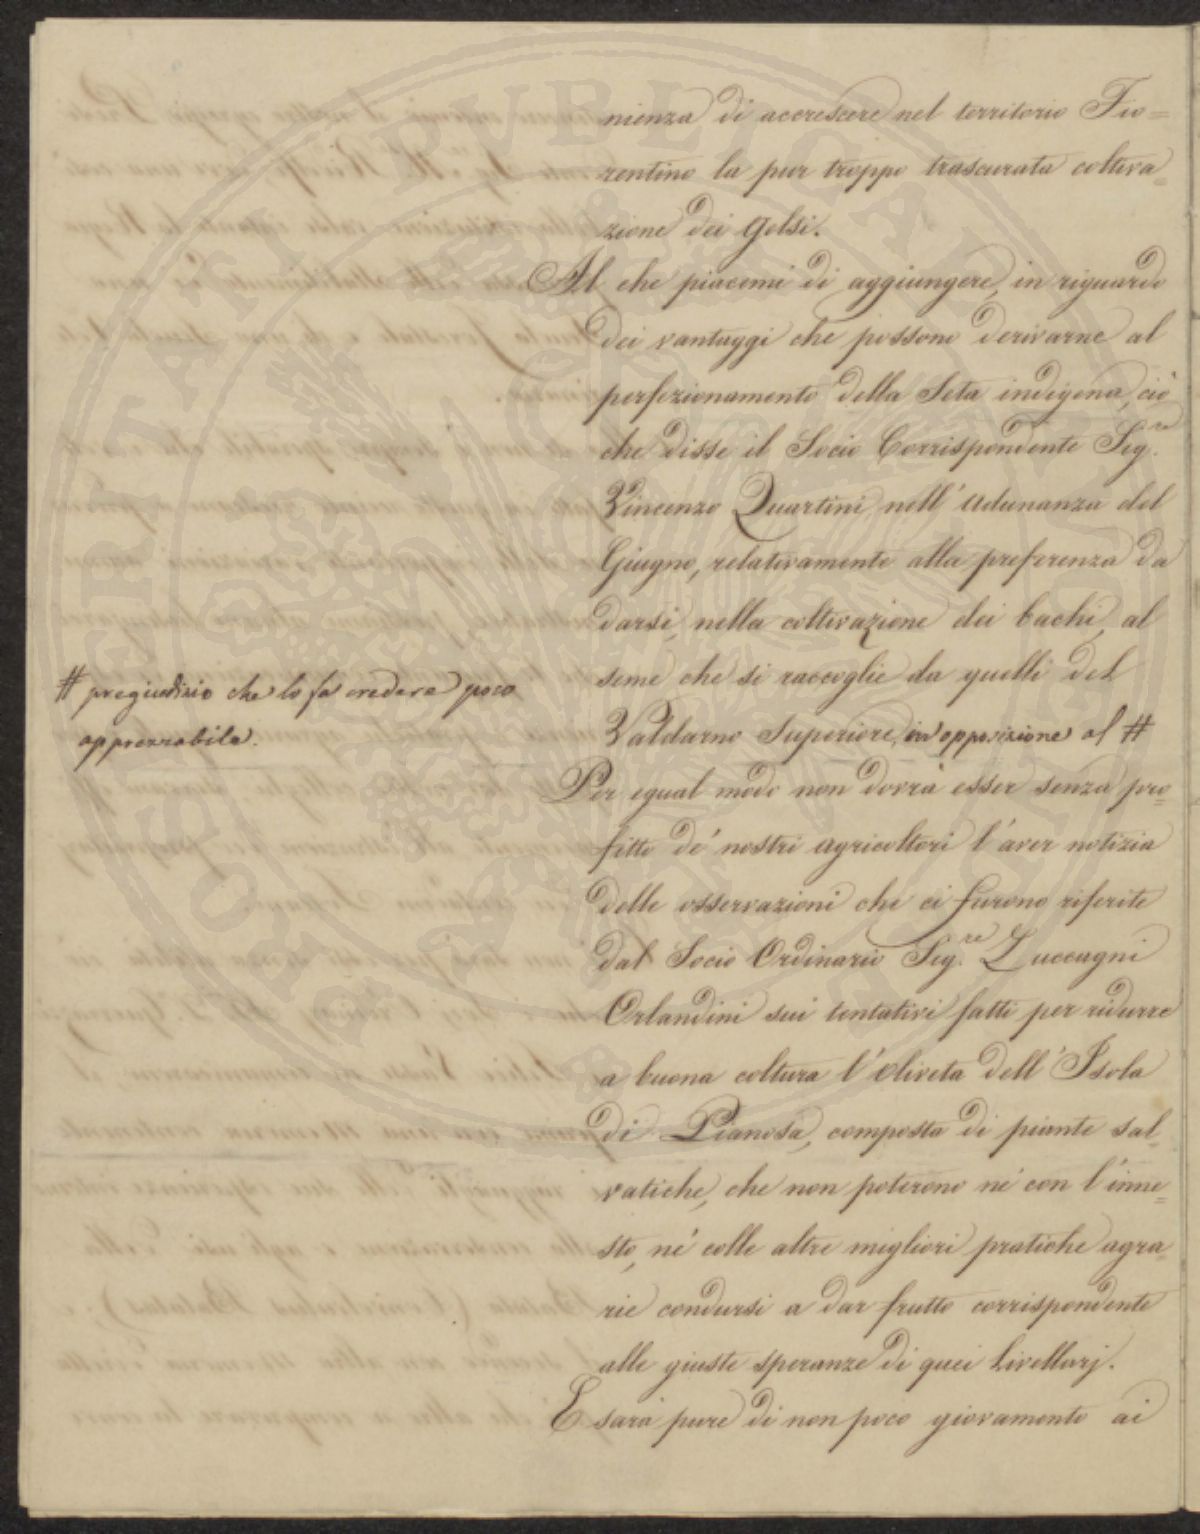 nienza di accrescere nel territorio Fio=
rentino la pur troppo trascurata coltiva=
zione dei Gelsi.
Al che piacemi di aggiungere, in riguardo
dei vantaggi che possono derivarne al
perfezionamento della Seta indigena, ciò
che disse il Socio Corrispondente Sig.re
Vincenzo Quartini nell' Adunanza del
Giugno, relativamente alla preferenza da
darsi, nella coltivazione dei bachi, al
seme che si raccoglie da quelli del
Valdarno Superiore, in opposizione al #
# pregiudizio che lo fa credere poco
apprezzabile.
Per egual modo non dovrà esser senza pro=
fitto de' nostri agricoltori l'aver notizia
delle osservazioni che ci furono riferite
dal Socio Ordinario Sig.re Zuccagni
Orlandini sui tentativi fatti per ridurre
a buona coltura l'oliveta dell' Isola
di Pianosa, composta di piante sal=
vatiche, che non poterono nè con l'inne=
sto, nè colle altre migliori pratiche agra=
rie condursi a dar frutto corrispondente
alle giuste speranze di quei Livellarj.
E sarà pure di non poco giovamento ai